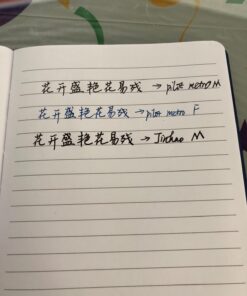 花开盛艳花易残 → pilot metro M
花开盛艳花易残 → pilot metro F
花开盛艳花易残 → Jinhao M